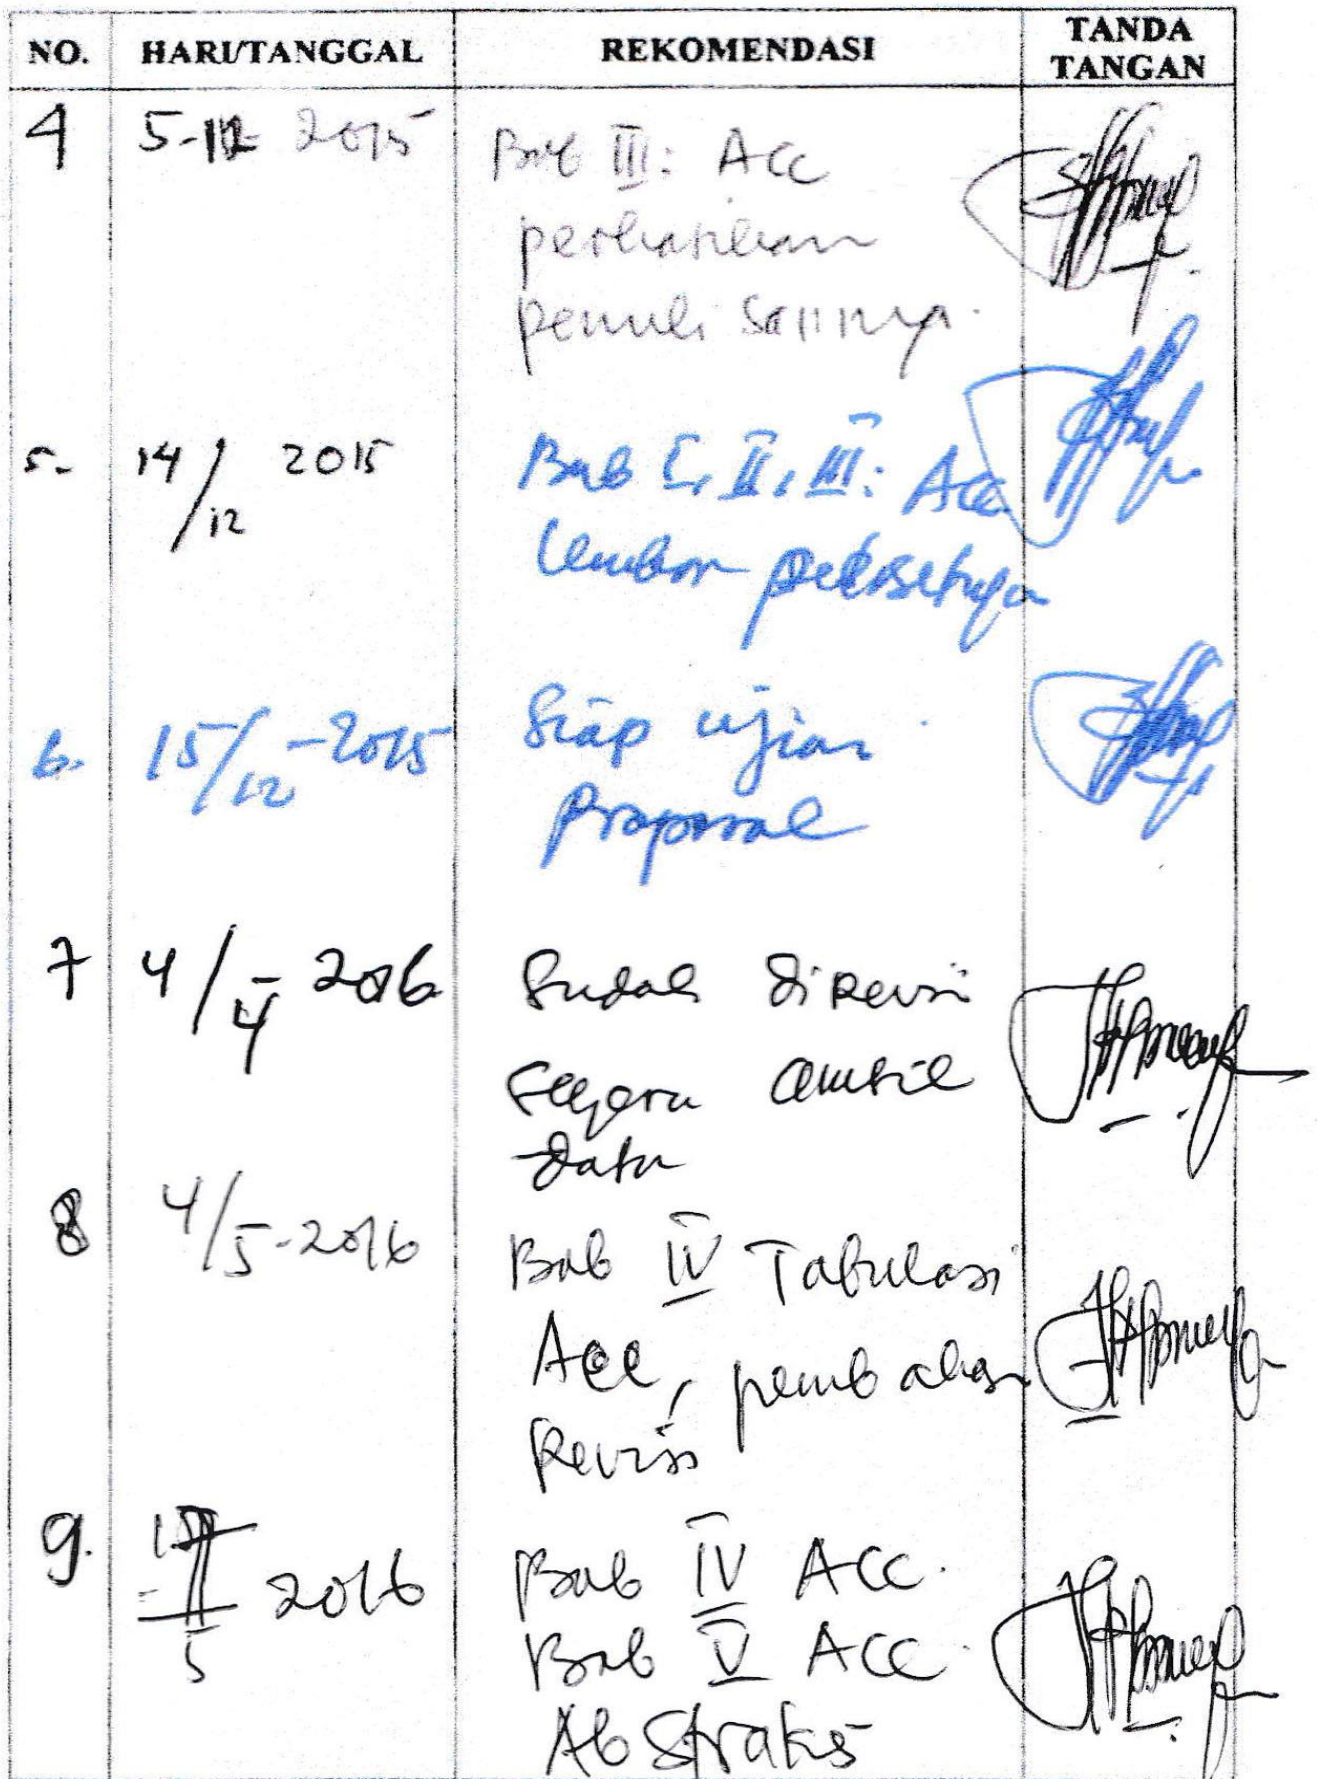 NO. HARI/TANGGAL REKOMENDASI TANDA TANGAN
4 5-12 2015 Bab III: Acc
perbaikan
penulisannya.
5. 14/12 2015 Bab I, II, III: Acc
lembar persetujuan
6. 15/12-2015 Siap ujian
proposal
7 4/4 2016 Sudah direvisi
segera ambil
data
8 4/5-2016 Bab IV Tabulasi
Acc, pembahasan
Revisi
9. 5 2016 Bab IV Acc.
Bab V Acc
Abstraks